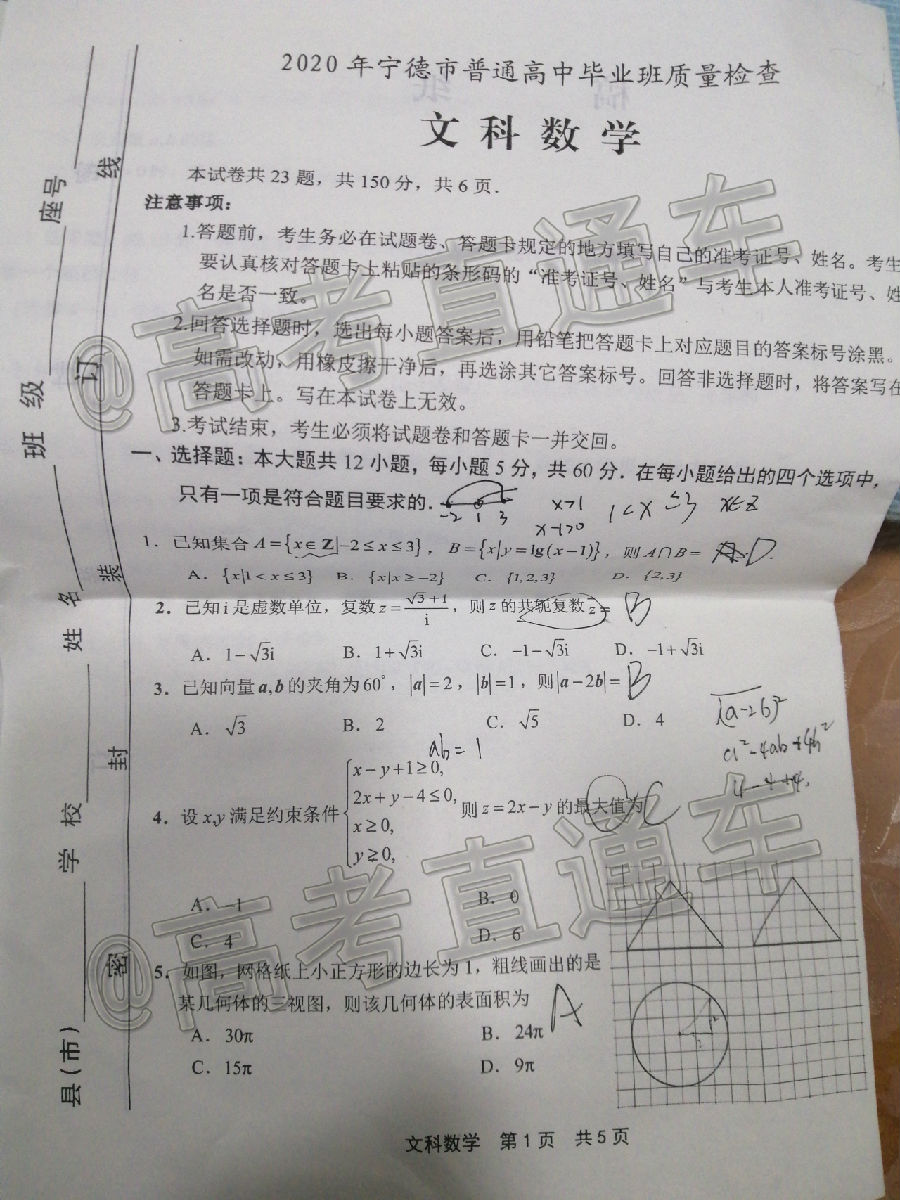 2020 年宁德市普通高中毕业班质量检查
文 科 数 学
本试卷共 23 题，共 150 分，共 6 页．
注意事项：
1.答题前，考生务必在试题卷、答题卡规定的地方填写自己的准考证号、姓名。考生
要认真核对答题卡上粘贴的条形码的“准考证号、姓名”与考生本人准考证号、姓
名是否一致。
2.回答选择题时，选出每小题答案后，用铅笔把答题卡上对应题目的答案标号涂黑。
如需改动，用橡皮擦干净后，再选涂其它答案标号。回答非选择题时，将答案写在
答题卡上。写在本试卷上无效。
3.考试结束，考生必须将试题卷和答题卡一并交回。
一、选择题：本大题共 12 小题，每小题 5 分，共 60 分．在每小题给出的四个选项中，
只有一项是符合题目要求的．
-2 1 3
x>1
x-1>0
1<x≤3 x∈Z
1．已知集合 A={x∈Z|-2≤x≤3}，B={x|y=lg(x-1)}，则 A∩B= D
A．{x|1<x≤3} B．{x|x≥-2} C．{1,2,3} D．{2,3}
2．已知 i 是虚数单位，复数 z=(√3+1)/i，则 z 的共轭复数 z̄= B
A．1-√3i B．1+√3i C．-1-√3i D．-1+√3i
3．已知向量 a,b 的夹角为 60°，|a|=2，|b|=1，则|a-2b|= B
A．√3 B．2 C．√5 D．4
√(a-2b)²
a²-4ab+4b²
4-4+4
ab=1
4．设 x,y 满足约束条件 {x-y+1≥0, 2x+y-4≤0, x≥0, y≥0, 则 z=2x-y 的最大值为 C
A．-1 B．0
C．4 D．6
5．如图，网格纸上小正方形的边长为 1，粗线画出的是
某几何体的三视图，则该几何体的表面积为 A
A．30π B．24π
C．15π D．9π
文科数学 第 1 页 共 5 页
县(市) 学校 姓名 班级 座号
密 封 装 订 线
@高考直通车
@高考直通车